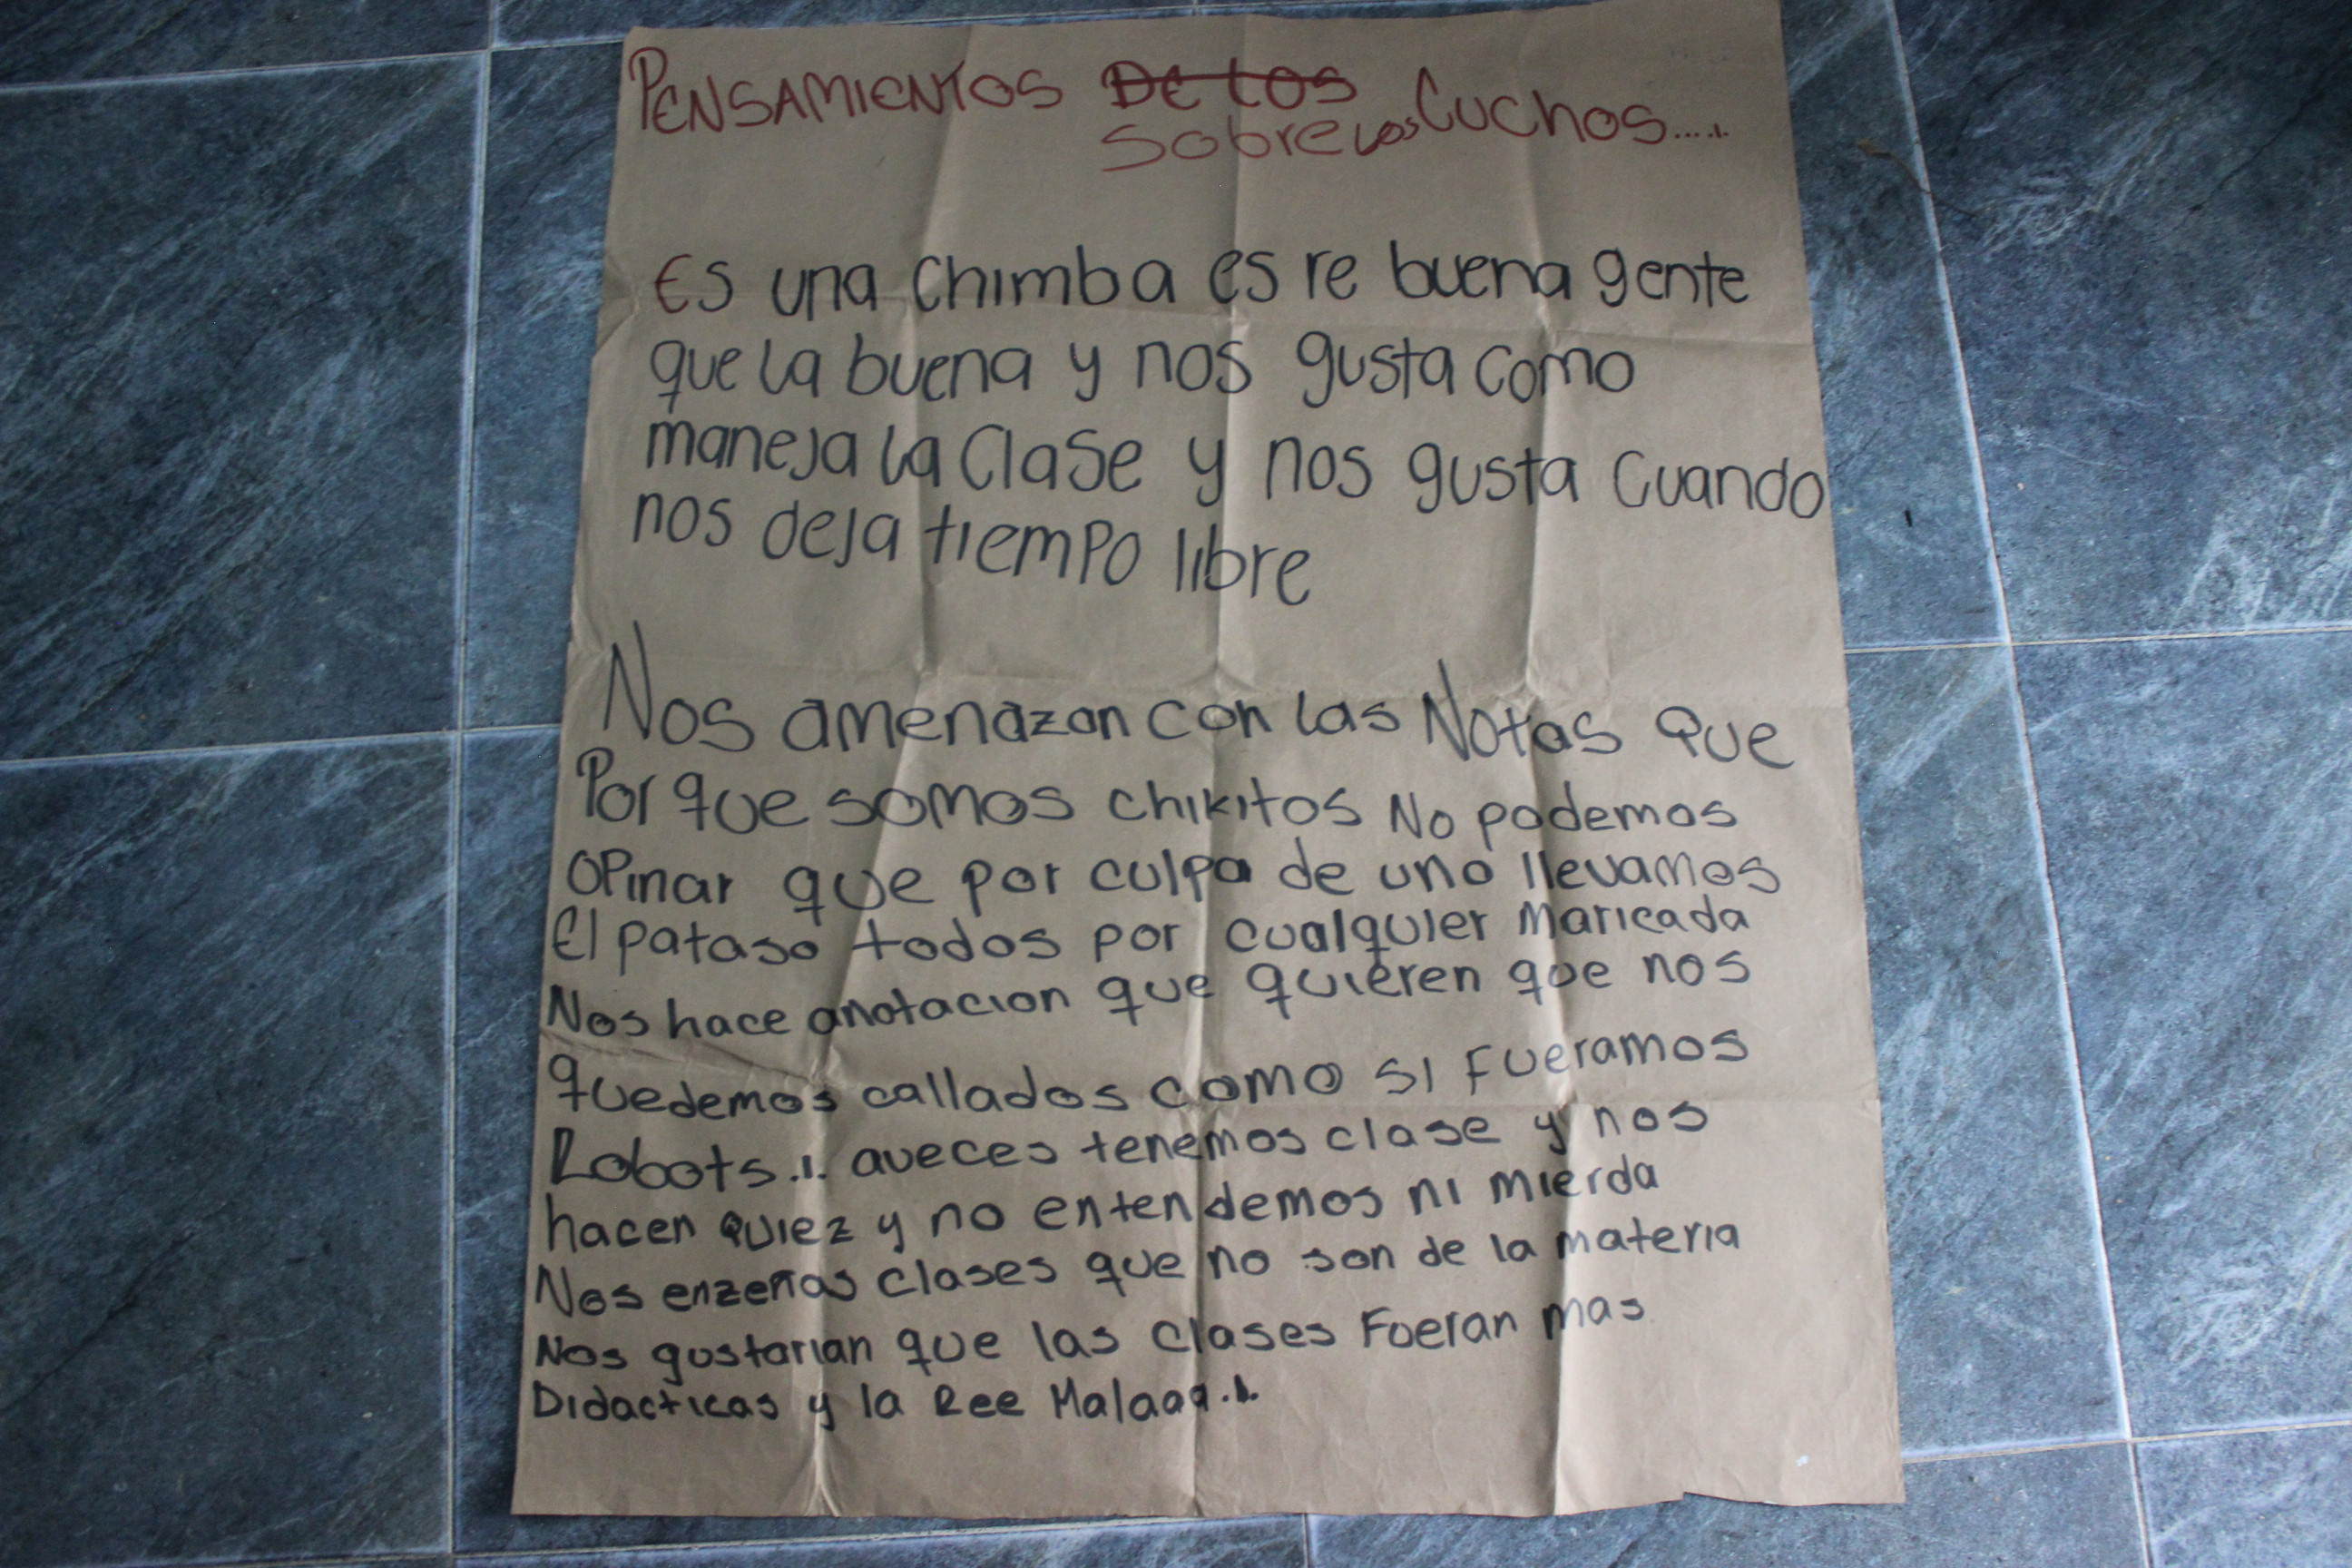 PENSAMIENTOS DE LOS Cuchos.....
sobre los
Es una chimba es re buena gente
que la buena y nos gusta como
maneja la clase y nos gusta cuando
nos deja tiempo libre
Nos amenazan con las Notas que
Por que somos chikitos No podemos
opinar que por culpa de uno llevamos
El pataso todos por cualquier maricada
Nos hace anotacion que quieren que nos
quedemos callados como si fueramos
Robots... aveces tenemos clase y nos
hacen quiez y no entendemos ni mierda
Nos enzeñas clases que no son de la materia
Nos gustarian que las clases Fueran mas
Didacticas y la Ree Malaaa..